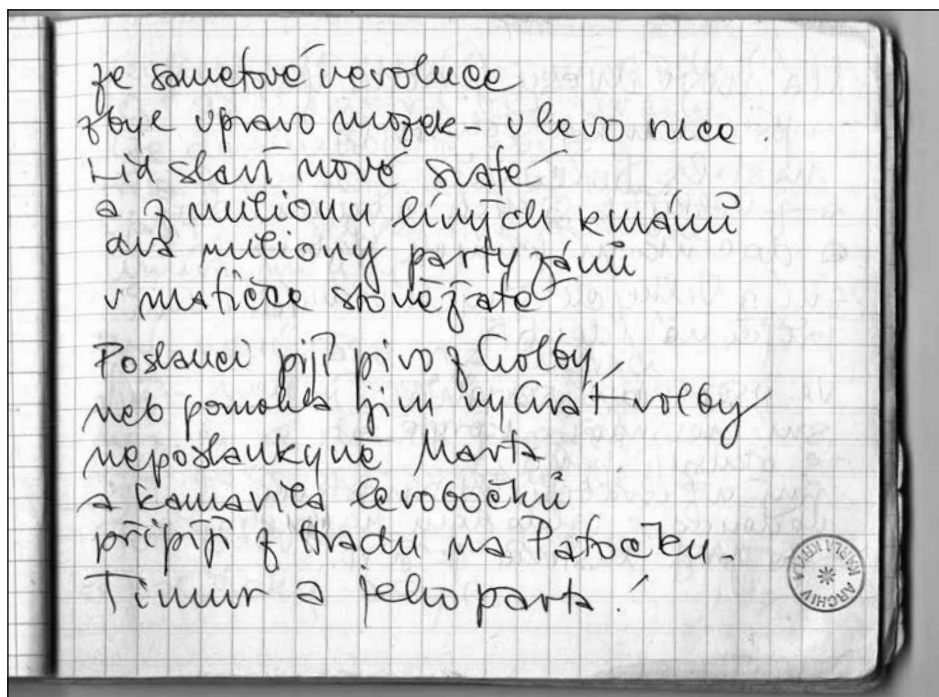 Ze sametové revoluce
zbyl vpravo mozek – vlevo ruce.
Lid slaví nové svaté
a z milionu líných kmánů
dva miliony partyzánů
v matičce stověžaté
Poslanci pijí pivo z holby,
neb pomohla jim vyhrát volby
neposlankyně Marta
a kamarila levobočků
připíjí z Hradu na Patočku.
Timur a jeho parta!
ARCHIV KARLA KRYLA